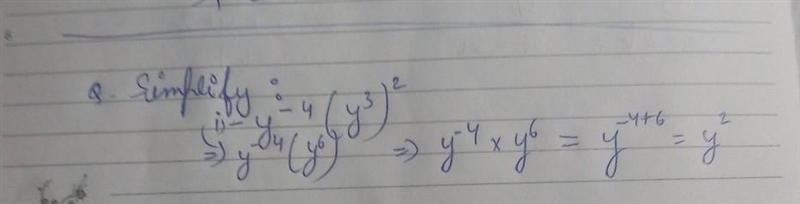 Q. Simplify :
(i) - y⁻⁴ (y³)²
⇒ y⁻⁴ (y⁶) ⇒ y⁻⁴ × y⁶ = y⁻⁴⁺⁶ = y²